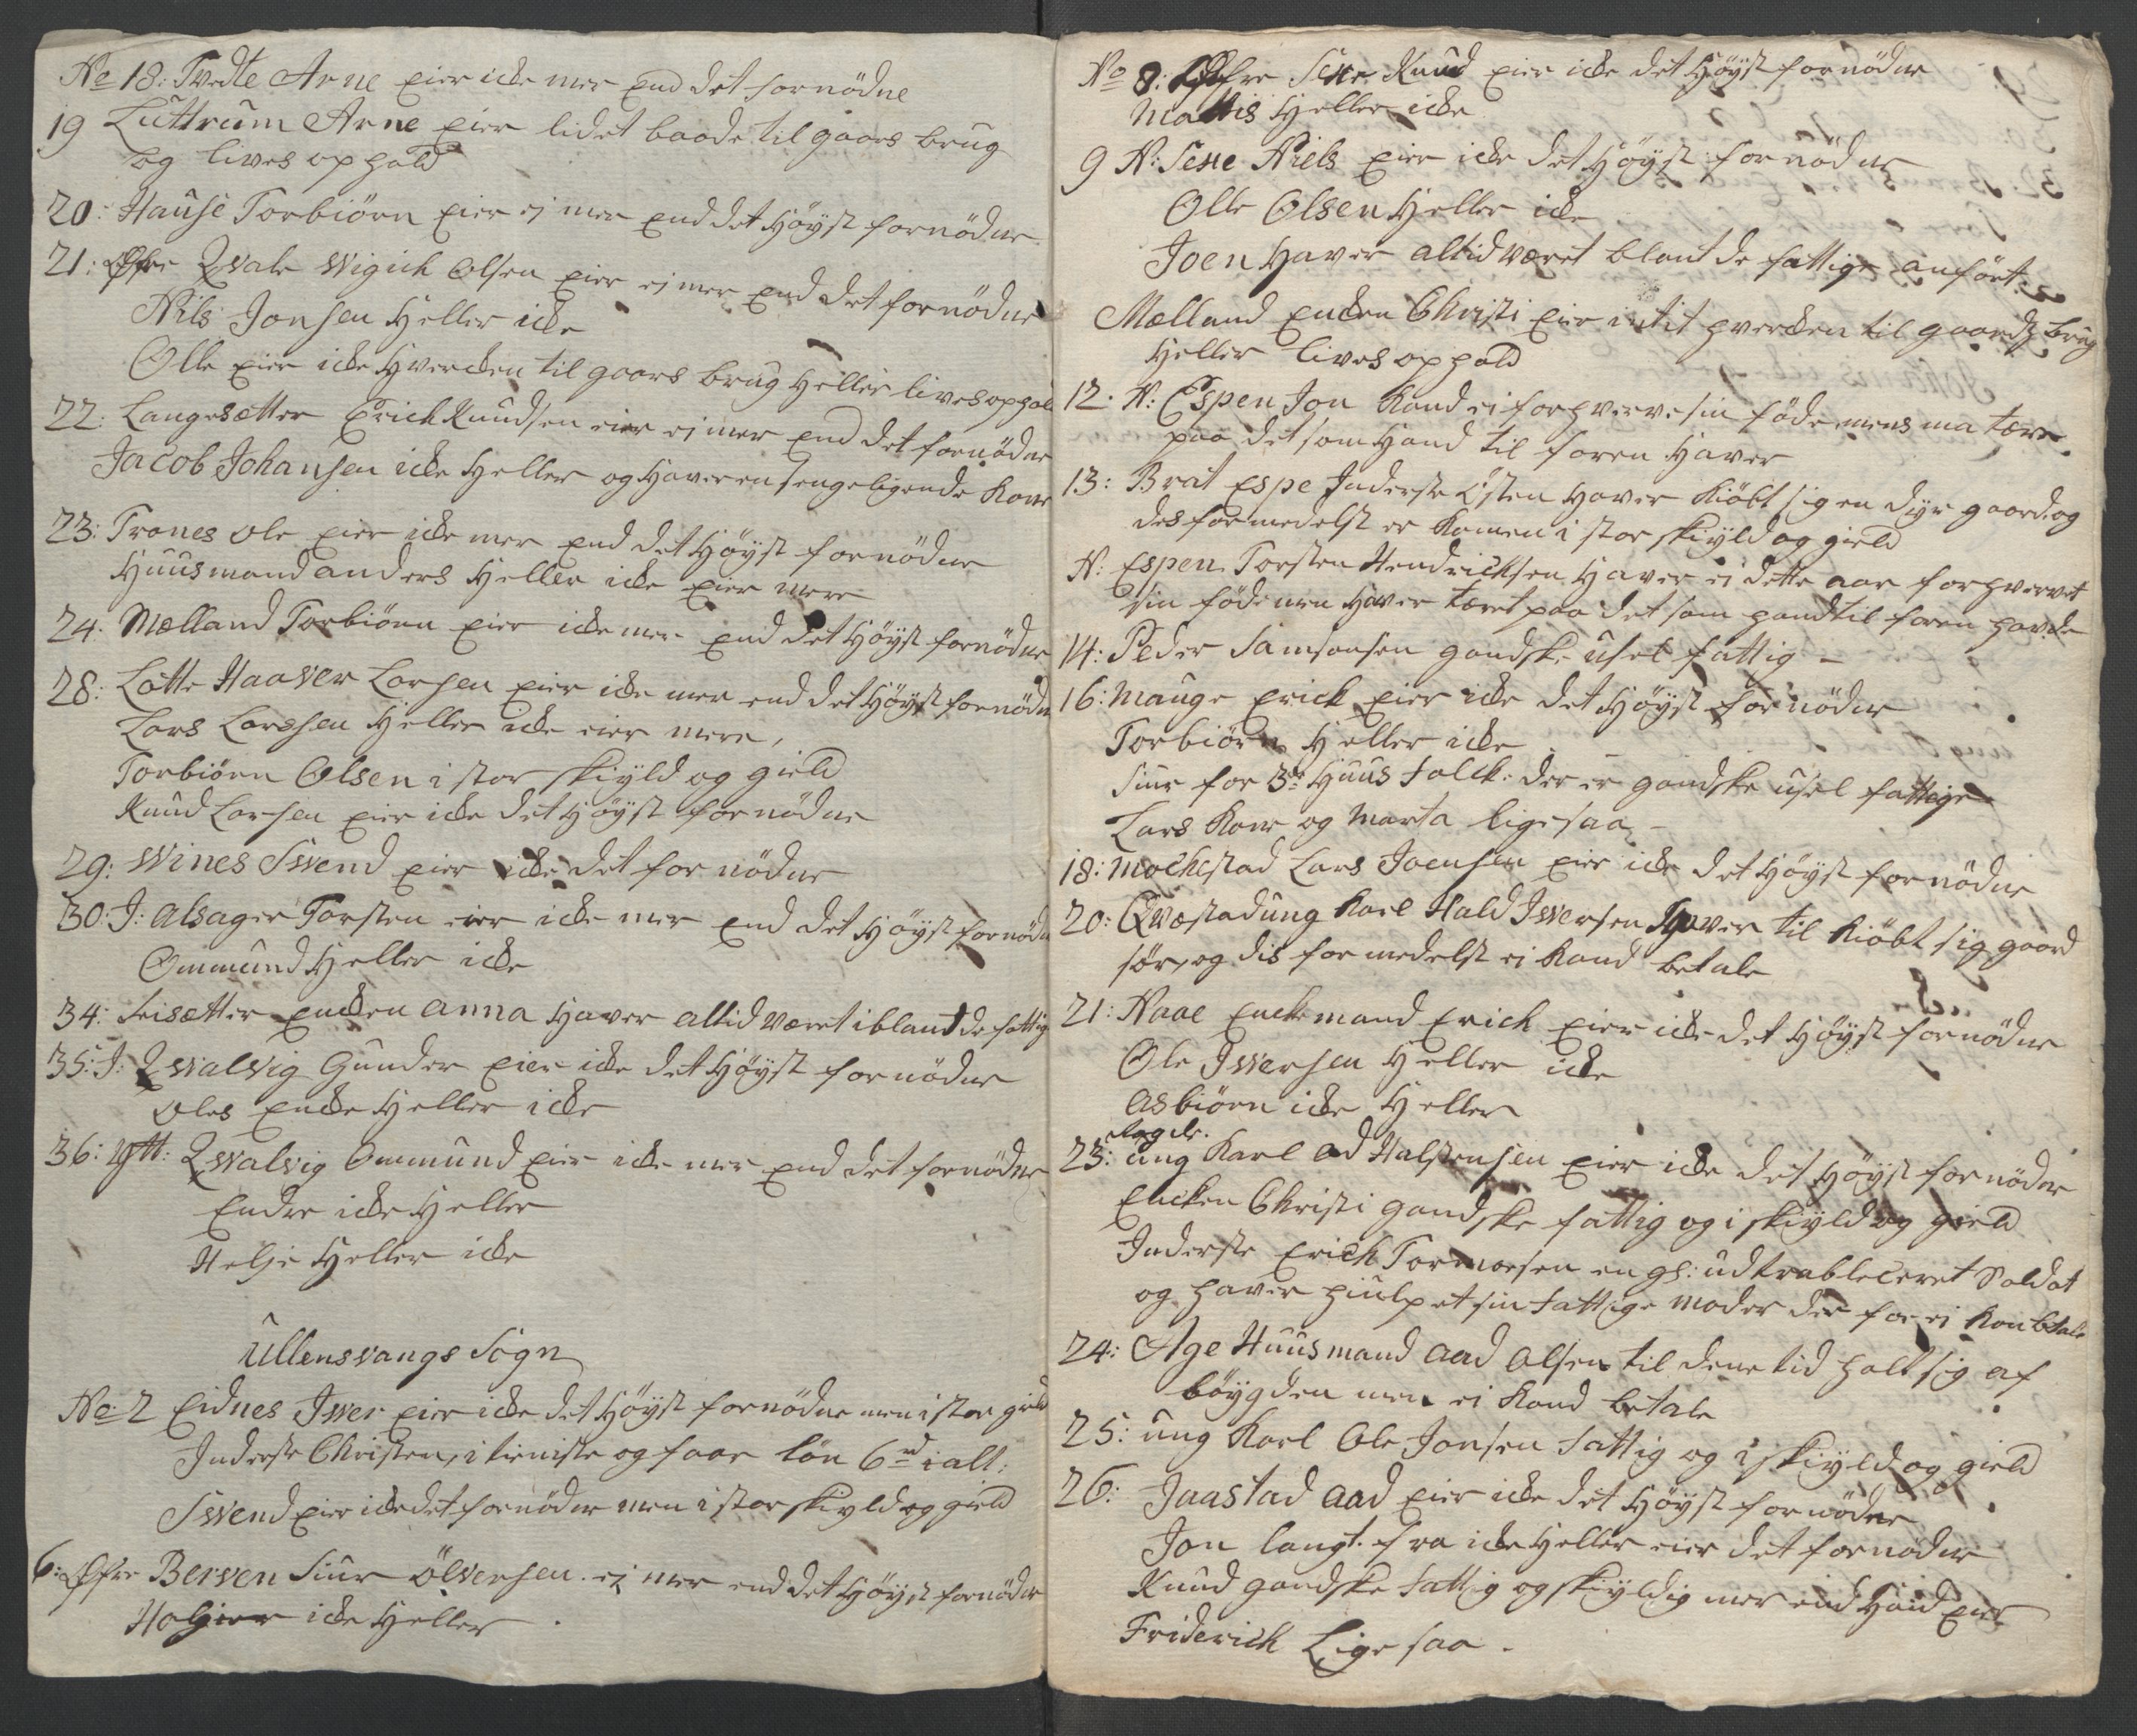 No 18: Tvedte Arne eier icke mer end det fornödne
19 Luttrum Arne eier lidet baade til gaars brug
og lives ophold
20: Hause Torbiörn eier ej mer end det Höyst fornödne
21: Öfre Qvale Wigich Olsen eier ej mer end det fornödne
Nils Jonsen Heller icke
Olle eier icke Hvercken til gaars brug Heller lives ophold
22: Langesætter Erich Knudsen eier ej mer end det fornödne
Jacob Johansen icke Heller og Haver en sengeligende Kone
23: Trones Ole eier icke mer end det Höyst fornödne
Huusmand anders Heller icke eier mere
24: Mælland Torbiörn eier icke mer end det Höyst fornödne
28: Lotte Haaver Larsen eier icke mer end det Höyst fornödne
Lars Larssen Heller icke eier mere,
Torbiörn Olsen i stor skÿld og gield
Knud Larsen eier icke det Höyst fornödne
29: Wines Svend eier icke det fornödne
30: J: Alsager Torsten eier icke mer end det Höyst fornödne
Ommund Heller icke
34: Leisætter encken anna Haver altid været iblant de fattig
35: J: Qvalvig Gunder eier icke det Höyst fornödne
Oles encke Heller icke
36: Ytt: Qvalvig Ommund eier icke mer end det fornödne
Endre icke Heller
Helje Heller icke
Ullensvangs Sogn
No: 2 Eidnes Iver eier icke det Höyst fornödne men i stor gield
Inderste Christen, i tieniste og faar lön 6 rd i alt:
Svend eier icke det fornödne men i stor skÿld og gield
6: Öfre Berven Siur Ölversen ej mer end det Höyst fornödne
Holgier icke Heller
No 8: Öfre Sexe Knud eier icke det Höyst fornödne
Mattis Heller icke
9 N: Sexe Niels eier icke det Höyst fornödne
Olle Olsen Heller icke
Joen Haver altid været blant de fattige anfört
Mælland encken Christi eier intit hvercken til gaards brug
Heller lives ophold
12. N: Espen Jon Kand ei forhverve sin föde mens ma tære
paa det som Hand til foren Haver
13: Brat Espe Inderste Östen Haver Kiöbt sig en dyr gaard og
desformedelst er Komen i stor skÿld og gield
N: Espen Torsten Hendrichsen Haver ej dette aar forhvervet
sin föde men Haver tæret paa det som hand til foren havde
14: Peder Samsonsen gandske usel fattig
16: Mauge Erick eier icke det Höyst fornödne
Torbiörn Heller icke
Siur for 3de Huus Folck: der er gandske usel fattige
Lars Kone og Marta ligesaa
18: Mochestad Lars Joensen eier icke det Höyst fornödne
20: Qvæstad ung Karl Hald Iversen Haver til Kiöbt sig gaard
för, og dis formedelst ei Kand betale
21: Naae Enckemand Erich eier icke det Höyst fornödne
Ole Iversen Heller icke
Asbiörn icke Heller
23: ung Karl Od Halstensen eier icke det Höyst fornödne
Encken Christi gandske fattig og i skÿld og gield
Inderste Erich Tormoesen en gl: udtrableceret Soldat
og haver hiulpet sin fattige Moder der for ej Kan betale
24: Age Huusmand Aad Olsen til dene tid holt sig af
böygden men ei Kand betale
25: ung Karl Ole Jonsen fattig og i skÿld og gield
26: Jaastad Aad eier icke det Höyst fornödne
Jon langt fra icke Heller eier det fornödne
Knud gandske fattig og skÿldig mer end Hand eier
Friderich Lige saa